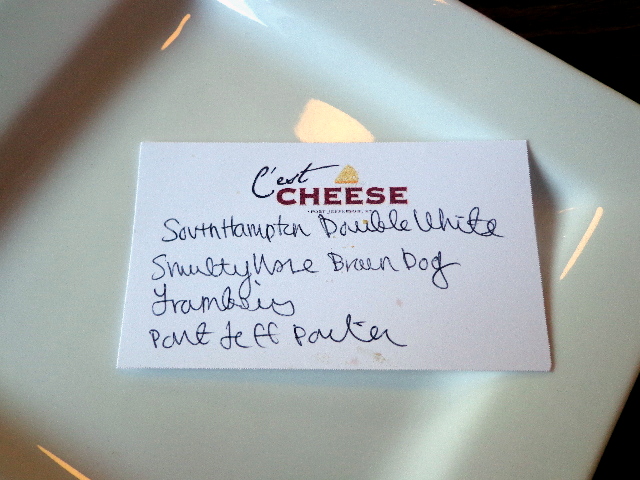 C'est
CHEESE
PORT JEFFERSON, NY
SouthHampton Double White
Smuttynose Brown Dog
Framboise
Port Jeff Porter